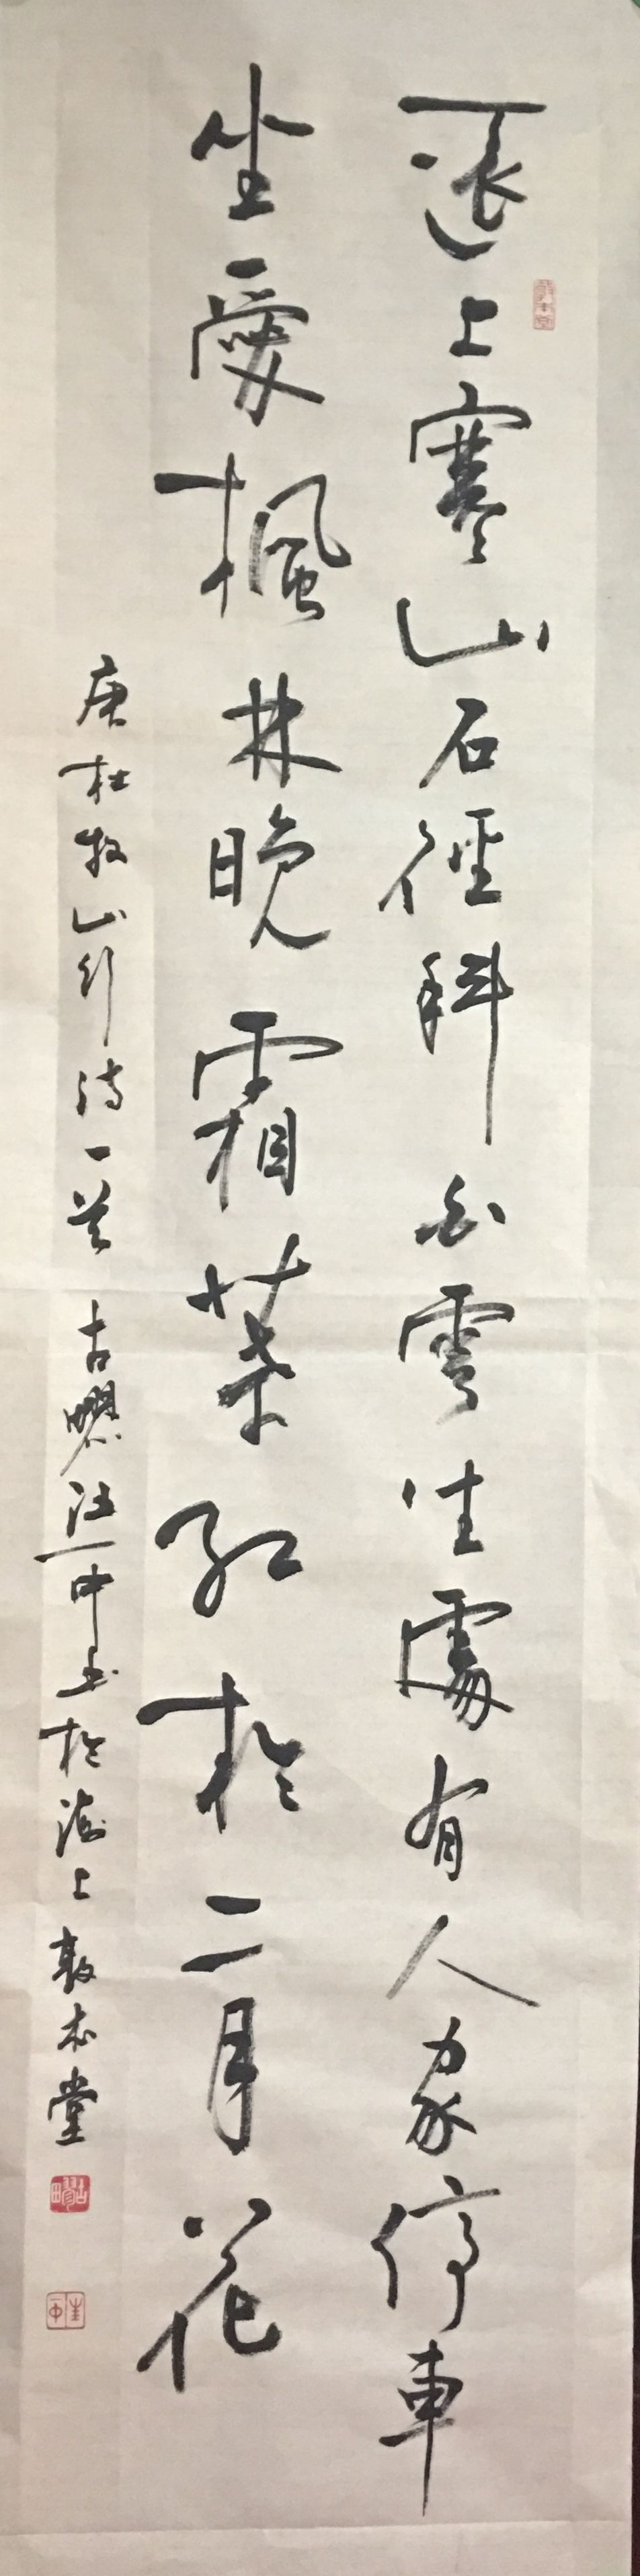 遠上寒山石徑斜白雲生處有人家停車
坐愛楓林晚霜葉紅於二月花
唐杜牧山行詩一首 古 中書於海上敦本堂
敦本堂